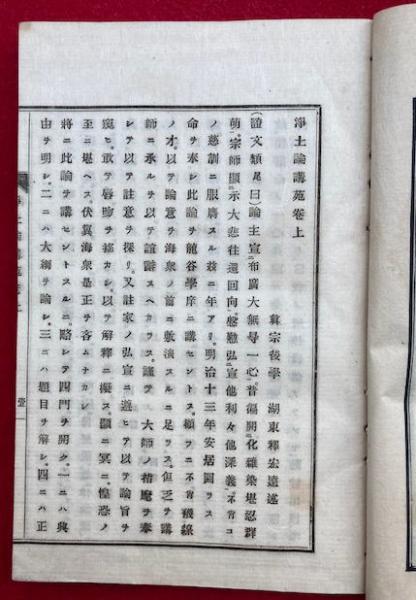 淨土論講苑卷上
眞宗後學 湖東釋宏遠述
(證文類尾曰)論主宣布廣大無㝵一心普徧開化雜染堪忍群
萌宗師顯示大悲往還回向慇懃弘宣他利々他深義不肖コ
ノ慈訓ニ服膺スル玆ニ年アリ明治十三年安居圖ラス
命ヲ奉シ此論ヲ龍谷學庠ニ講セントス顧フニ不肖襪線
ノ才以テ論意ヲ海衆ノ前ニ敷演スルニ足ラス但乏ヲ講
師ニ承ルヲ以テ誼辭スヘカラス謹テ大師ノ指麾ヲ奉
シテ以テ註意ヲ探リ又註家ノ弘宣ニ遊ヒテ以テ論旨ヲ
窺ヒ敢テ唇吻ヲ搖カシ以テ解釋ニ擬ス顯ニ冥ニ惶恐ノ
至ニ堪ヘス伏冀海衆是正ヲ吝ムナカレ
將ニ此論ヲ講セントスルニ略シテ四門ヲ開ク一ニハ興
由ヲ明シ二ニハ大綱ヲ論シ三ニハ題目ヲ解シ四ニハ正
壹